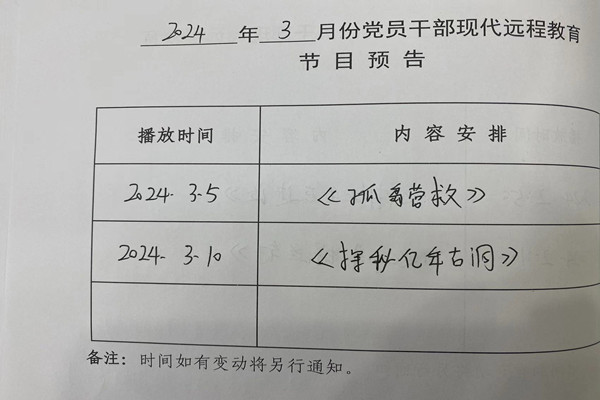 2024年3月份党员干部现代远程教育
节目预告
播放时间 内容安排
2024.3.5 《孤岛营救》
2024.3.10 《探秘亿年古洞》
备注：时间如有变动将另行通知。